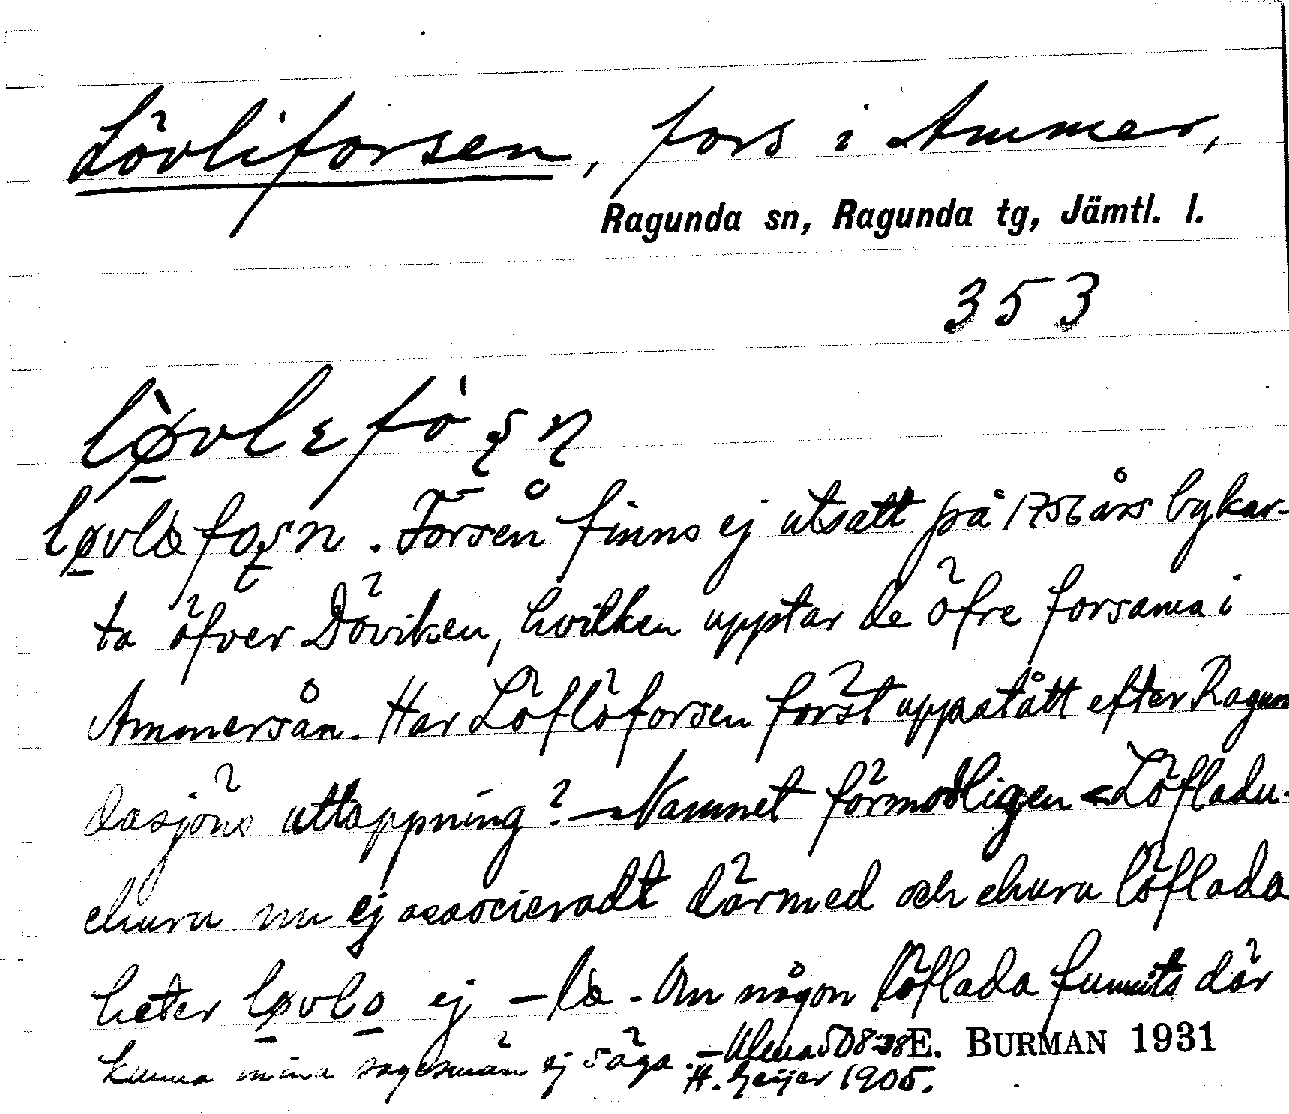 Lövliforsen, fors i Ammer,
Ragunda sn, Ragunda tg, Jämtl. l.
353
finns ej utsatt på 1756 års bykar-
ta öfver Döviken, hvilken upptar de öfre forsarna i
Ammersån. Har Löflöforsen först uppstått efter Ragun
dasjöns uttappning? – Namnet förmodligen < Löfladu-
ehuru nu ej associeradt därmed och ehuru löflada
heter løvlo ej – Om någon löflada funnits där
kunna mina sagesmän ej säga. –
E. BURMAN 1931
H. Geijer 1905.